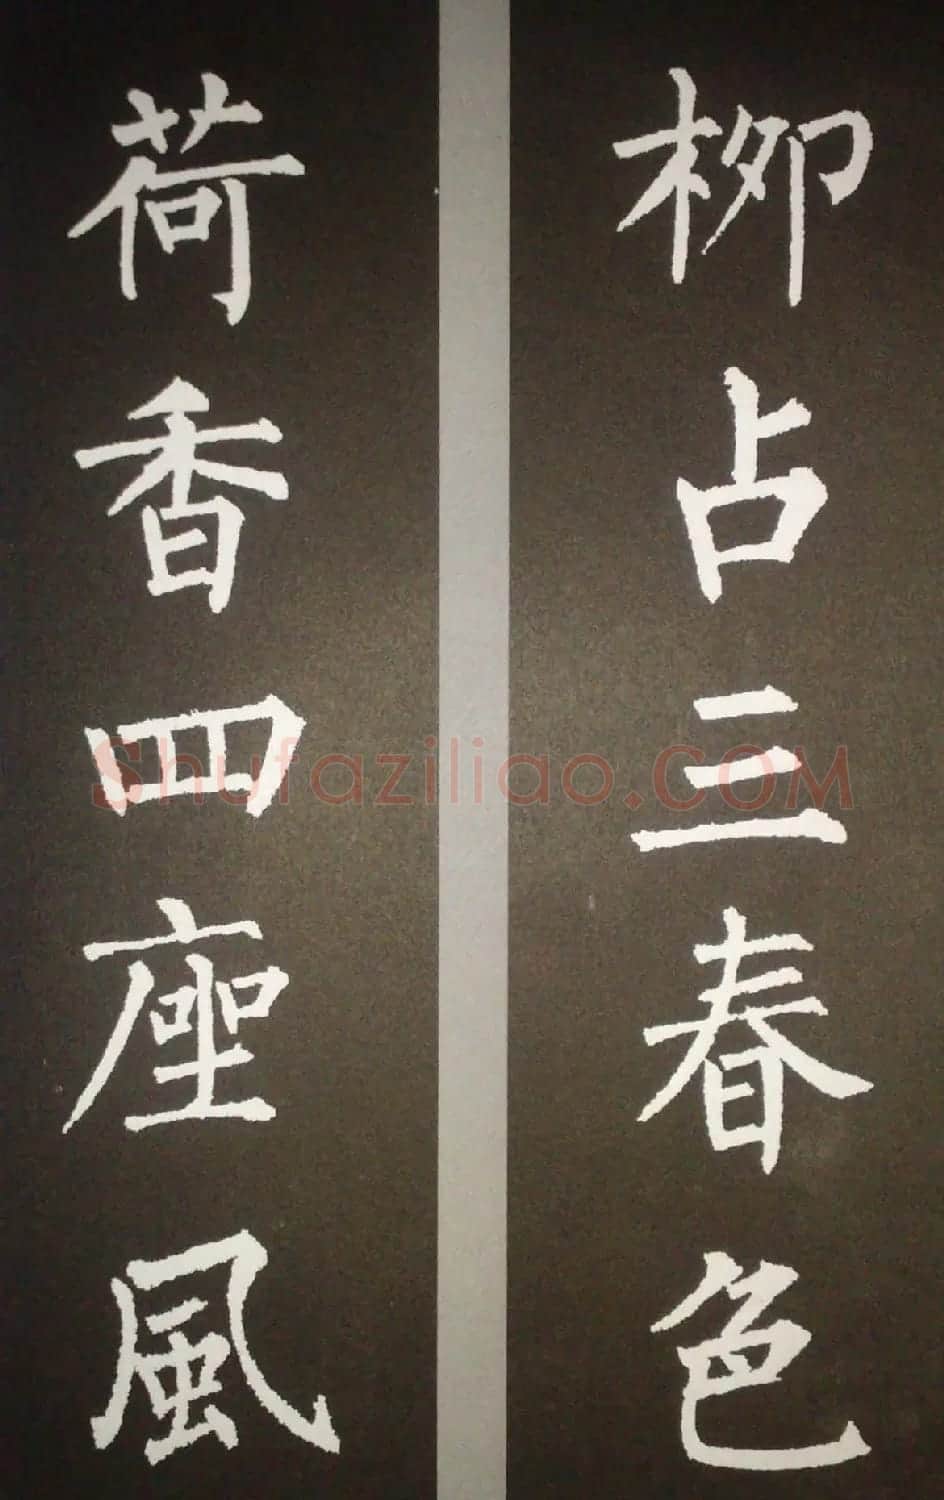 柳占三春色
荷香四座風
Shufaziliao.COM